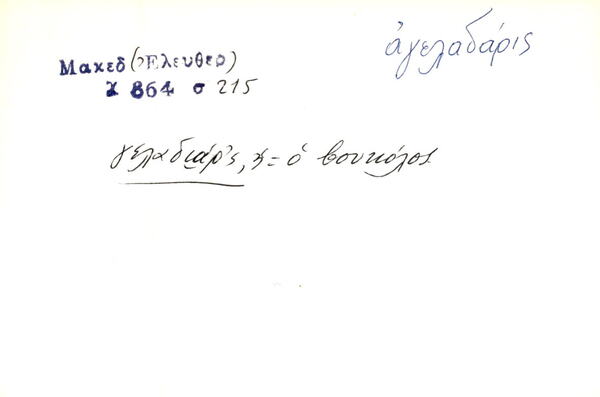 ἀγελαδάρις
Μακεδ (Ἐλευθερ)
χ 864 σ 215
γελαδιάρ'ς, = ὁ βουκόλος